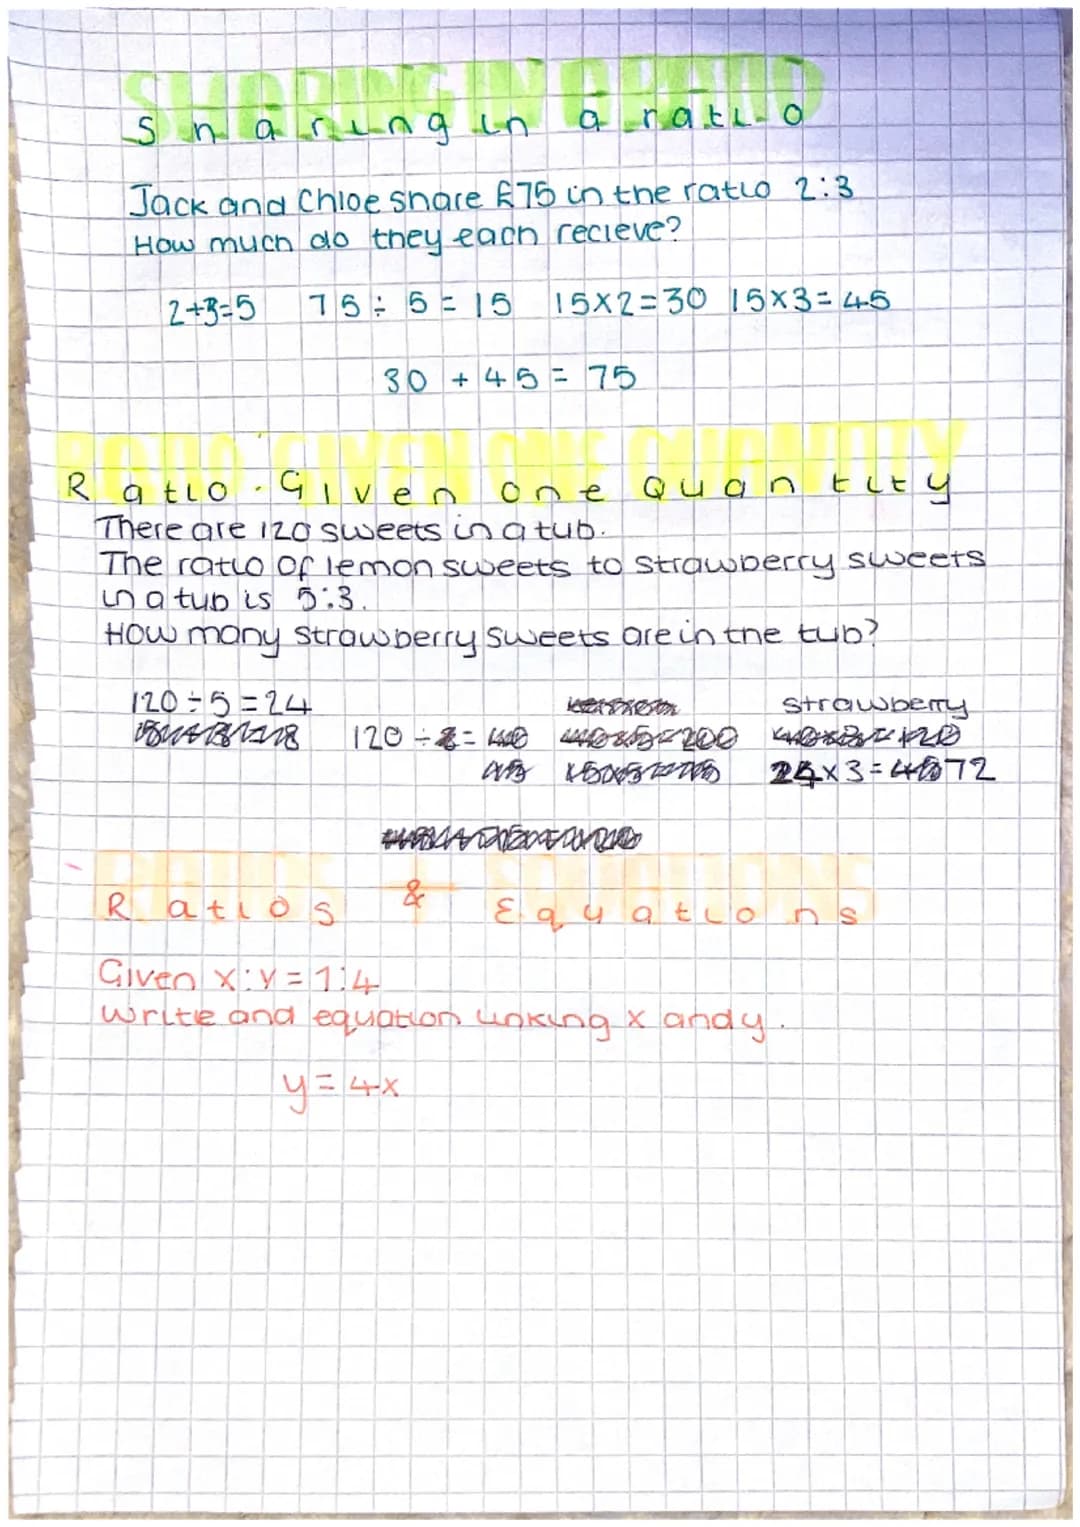 SHARING IN A RATIO
Sharing in a ratio
Jack and Chloe share £75 in the ratio 2:3
How much do they each recieve?
2+3=5 75÷5=15 15×2=30 15×3=45
30+45=75
RATIO: GIVEN ONE QUANTITY
Ratio. Given one Quantity
There are 120 sweets in a tub.
The ratio of lemon sweets to strawberry sweets
in a tub is 5:3.
How many strawberry sweets are in the tub?
120÷5=24 strawberry
120÷ =
24×3= 72
Ratios & Equations
Given x:y=1:4
Write and equation linking x and y.
y=4x